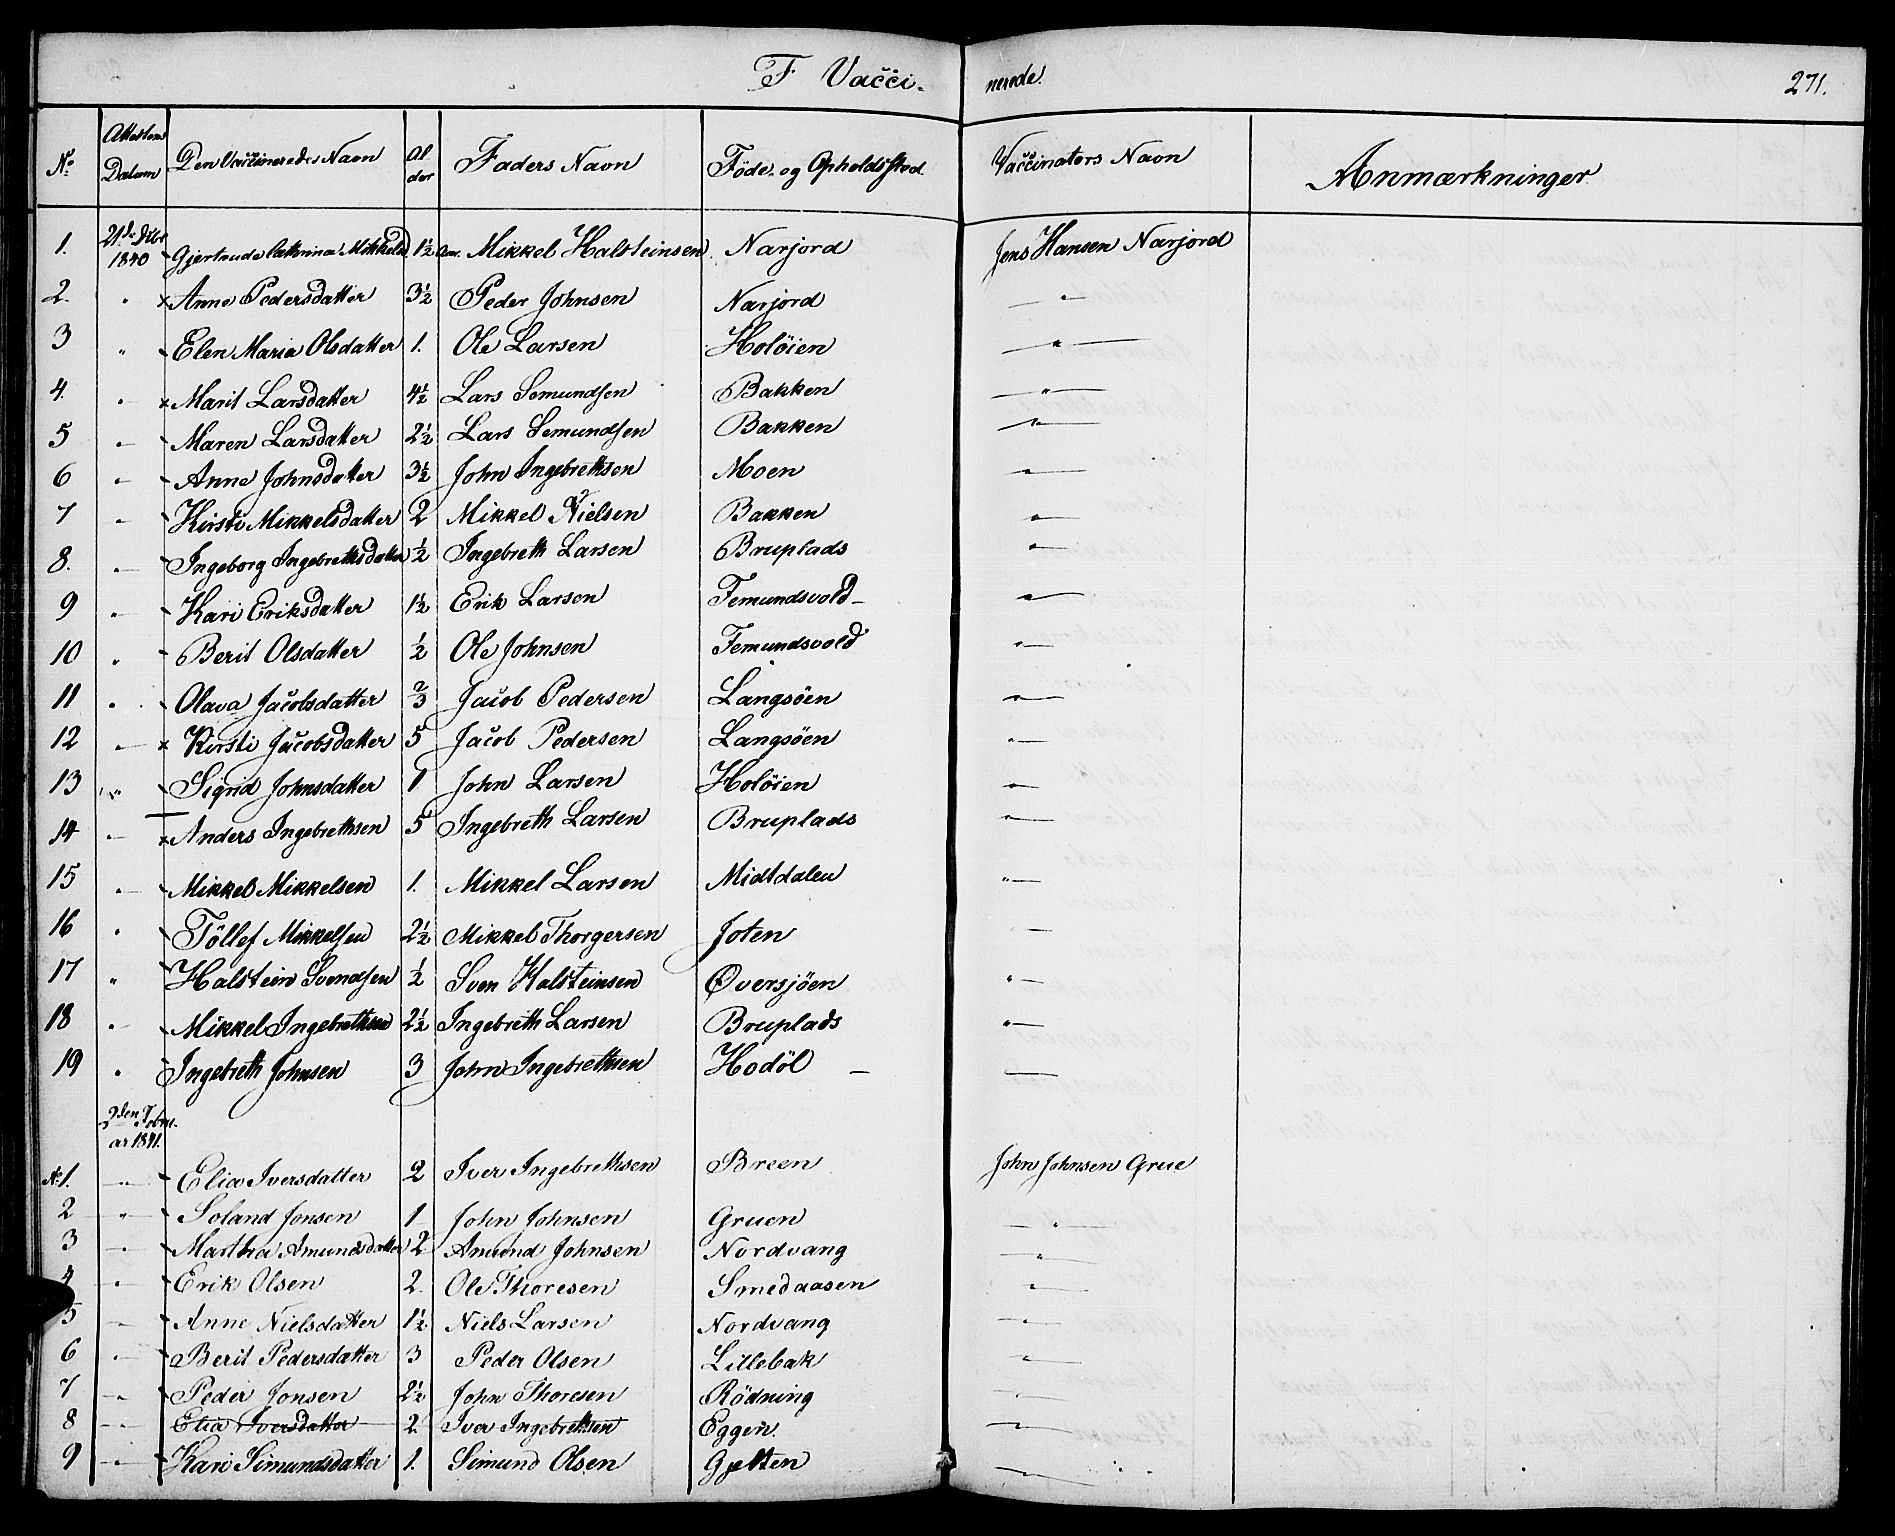 F Vacci- nerede. 271.
No Attestens Datum Den Vaccineredes Navn Al der Faders Navn Föde- og Opholdssted Vaccinators Navn Anmærkninger
1. 21de 1840 Gjertrude Cathrina Mikkelsd 1½ Mikkel Halsteinsen Narjord Jens Hansen Narjord
2. " x Anne Pedersdatter 3½ Peder Johnsen Narjord — " —
3 " Elen Maria Olsdatter 1. Ole Larsen Holöien — " —
4. " x Marit Larsdatter 4½ Lars Semundsen Bakken — " —
5 " Maren Larsdatter 2½ Lars Semundsen Bakken — " —
6 " Anne Johnsdatter 3½ John Ingebrethsen Moen — " —
7 " Kirsti Mikkelsdatter 2 Mikkel Nielsen Bakken " —
8. " Ingeborg Ingebrethsdatter ½ Ingebreth Larsen Bruplads " —
9 " Kari Eriksdatter 1½ Erik Larsen Femundsvold " —
10 " Berit Olsdatter ½ Ole Johnsen Femundsvold " —
11 " Olava Jacobsdatter ⅔ Jacob Pedersen Langsöen " —
12 " x Kirsti Jacobsdatter 5 Jacob Pedersen Langsöen " —
13 " Sigrid Johnsdatter 1 John Larsen Holöien " —
14 " x Anders Ingebrethsen 5 Ingebreth Larsen Bruplads " —
15 " Mikkel Mikkelsen 1. Mikkel Larsen Midtdalen " —
16 " Töllef Mikkelsen 2½ Mikkel Thorgersen Joten —
17 " Halstein Svendsen ½ Sven Halsteinsen Øversjöen " —
18 " Mikkel Ingebrethsen 2½ Ingebreth Larsen Bruplads " —
19 " Ingebreth Johnsen 3 John Ingebrethsen Hodöl —
2den Febru-
ar 1841.
No 1. " Elia Iversdatter 2 Iver Ingebrethsen Breen John Johnsen Grue
2 " Soland Jonsen 1 John Johnsen Gruen — " —
3 " Martha Amundsdatter 2 Amund Johnsen Nordvang "
4 " Erik Olsen 2. Ole Thoresen Smedaasen "
5 Anne Nielsdatter 1½ Niels Larsen Nordvang "
6 " Berit Pedersdatter 3 Peder Olsen Lillebak "
7 " Peder Jonsen 2½ John Thoresen Rödning "
8 " Elia Iversdatter 2. Iver Ingebrethsen Eggen. "
9 " Kari Simundsdatter 1. Simund Olsen Gjelten "